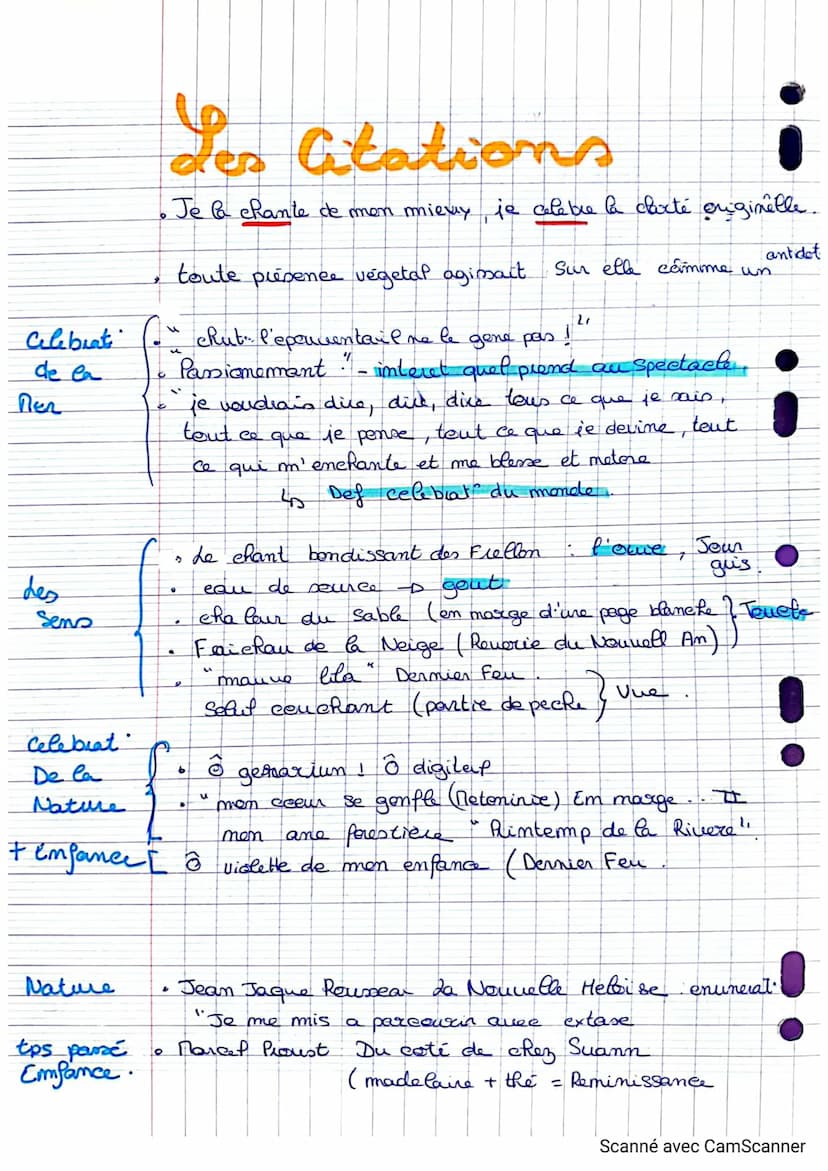 Les Citations
• Je la chante de mon mieux, je celebre la clarté originêlle.
• toute présence végetal agissait Sur elle cômme un antidot
Celebrat° de la Mer
• " chut l'epouventail ne le gene pas ! "
• Passionemant " - interet quel prend au Spectacle.
• " je voudrais dire, dire, dire tous ce que je sais,
tout ce que je pense, tout ce que je devine, tout
ce qui m'enchante et me blesse et metone
↳ Def celebrat° du monde.
des Sens
• Le chant bondissant des Frellon : l'ouie, Jour gris.
• eau de source → gout
• chaleur du Sable (en marge d'une page blanche } Touche
• Faicheu de la Neige (Reverie du Nouvell An)
• "mauve lila" Dernier Feu.
Soleil couchant (partie de peche } Vue.
Celebrat° De la Nature
• Ô geranium ! Ô digital
• " mon coeur se gonfle (Metonimie) Em marge... II
mon ame forestière " Printemp de la Rivera".
+ Enfance [ Ô violette de mon enfance (Dernier Feu.
Nature • Jean Jaque Rousseau La Nouvelle Heloise enumerat°
"Je me mis a parcourir avec extase
tps passé Emfance. • Marcel Proust Du coté de chez Suann
(madelaine + thé = Reminissance
Scanné avec CamScanner